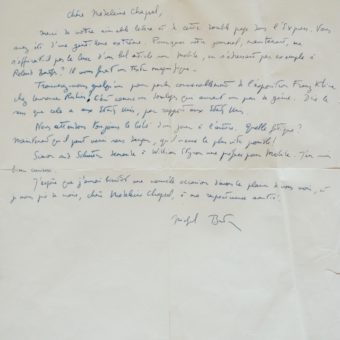 Chère Madeleine Chapsal,
merci de votre aimable lettre et de cette double page dans l'Express. Vous
avez été d'une gentillesse extrême. Pourquoi votre journal, maintenant, ne
s'offrirait-il pas le luxe d'un bel article sur Mobile, en s'adressant par exemple à
Roland Barthes? Il vous ferait un texte magnifique.
Trouvez-vous quelqu'un pour parler convenablement de l'exposition Franz Kline
chez Lawrence Rubin,
sens que cela a aux États Unis, par rapport aux États Unis
Nous attendons toujours le bébé d'un jour à l'autre. Quelle fatigue?
maintenant qu'il peut venir sans danger, qu'il vienne le plus vite possible!
Simon and Schuster demande à William Styron une préface pour Mobile. J'en suis
bien curieux.
J'espère que j'aurai bientôt une nouvelle occasion d'avoir le plaisir de vous voir, et
chère Madeleine Chapsal, à ma respectueuse amitié.
Michel Butor